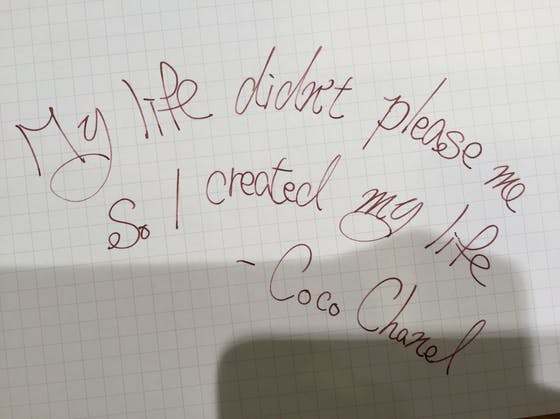 My life didn't please me
So I created my life
- Coco Chanel